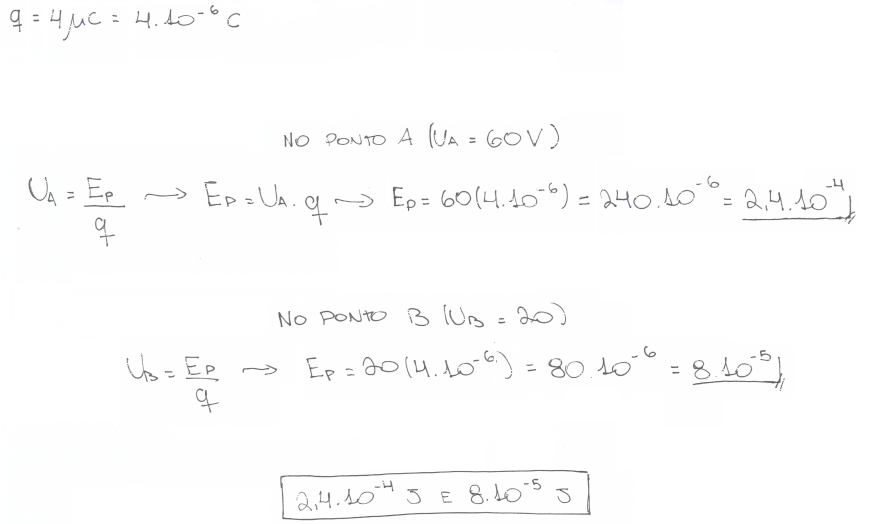 q = 4μC = 4.10⁻⁶ C
NO PONTO A (UA = 60V)
UA = EP/q → EP = UA . q → EP = 60(4.10⁻⁶) = 240.10⁻⁶ = 2,4.10⁻⁴ J
NO PONTO B (UB = 20)
UB = EP/q → EP = 20(4.10⁻⁶) = 80.10⁻⁶ = 8.10⁻⁵ J
2,4.10⁻⁴ J E 8.10⁻⁵ J